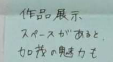 作品展示
スペースがあると、
加茂の魅力も